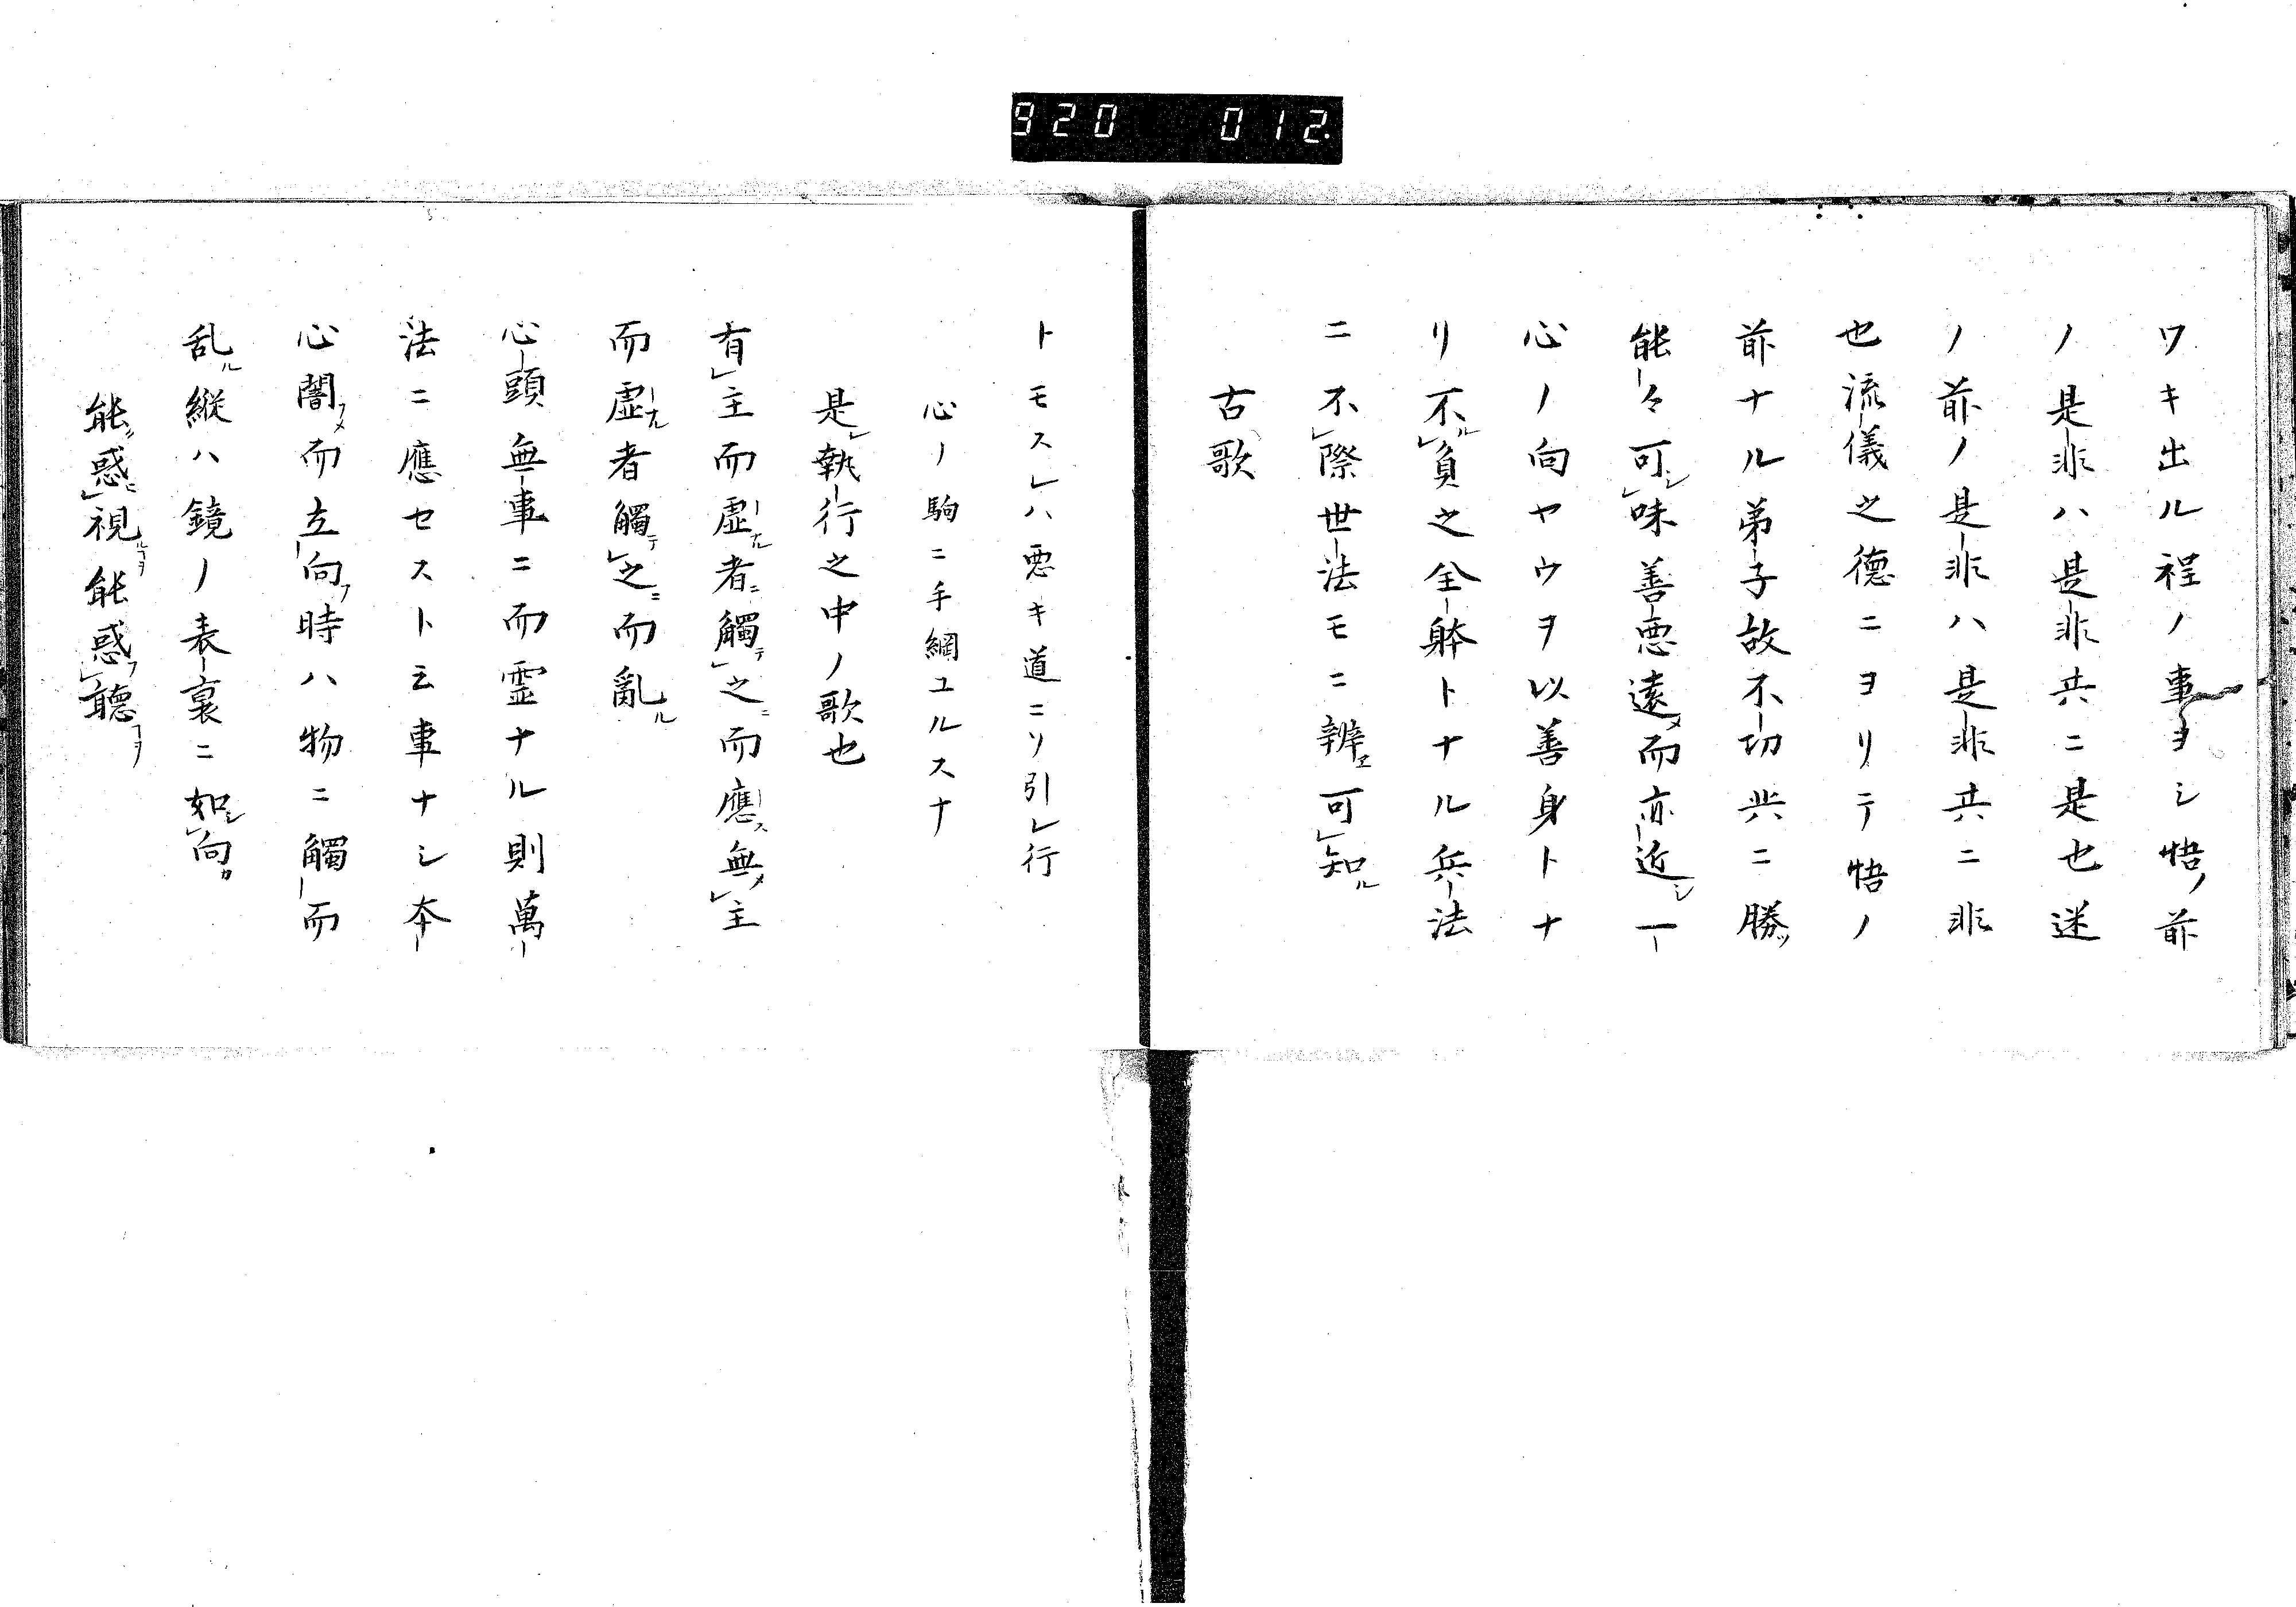 920 012
ワキ出ル程ノ事ヲシ悟ノ前
ノ是非ハ是非共ニ是也迷
ノ前ノ是非ハ是非共ニ非
也流儀之徳ニヨリテ悟ノ
前ナル弟子故不切共ニ勝ツ
能々可シレ味善悪遠メ而亦近シ一
心ノ向ヤウヲ以善身トナ
リ不ルレ負之全躰トナル兵法
ニ不レ際世法モニ辨エ可レ知ル
古歌
トモスレハ悪キ道ニソ引レ行
心ノ駒ニ手綱ユルスナ
是レ執行之中ノ歌也
有レ主而虚ナル者ニ觸テレ之ニ而應ス無メレ主
而虚ナル者觸テレ之ニ而亂ル
心頭無事ニ而霊ナル則萬
法ニ應セスト云事ナシ本
心闇フメ而立向フ時ハ物ニ觸而
乱ル縱ハ鏡ノ表裏ニ如シレ向カ
能シ惑ニレ視ルヿヲ能惑フレ聽ヿヲ